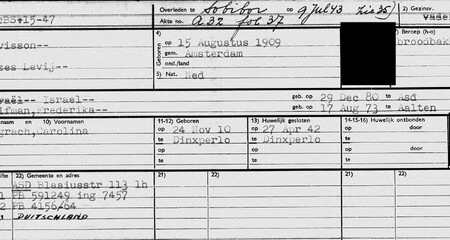 CBS+15-47
Overleden te Sobibor op 9 Jul 43
2) Gezinsv.
Akte no. A 32 fol 37
Vade
visson--
4)
op 15 Augustus 1909
gem. Amsterdam
ond./land
Geboren
Beroep (h-o)
broodbak
Levij--
5) Nat. Ned
Israel--
geb. op 29 Dec 80 te Asd
Frederika--
geb. op 17 Aug 73 te Aalten
naam en 10) Voornamen
11-12) Geboren
13) Huwelijk gesloten
14-15-16) Huwelijk ontbonden
grach, Carolina
op 24 Nov 10
op 27 Apr 42
op door
te Dinxperlo
te Dinxperlo
te
op
op
op door
te
te
te
22) Gemeente en adres
21)
22)
21)
22)
ASD Blasiusstr 113 lh
1 PB 591249 ing 7457
2 PB 4156/64
DUITSCHLAND